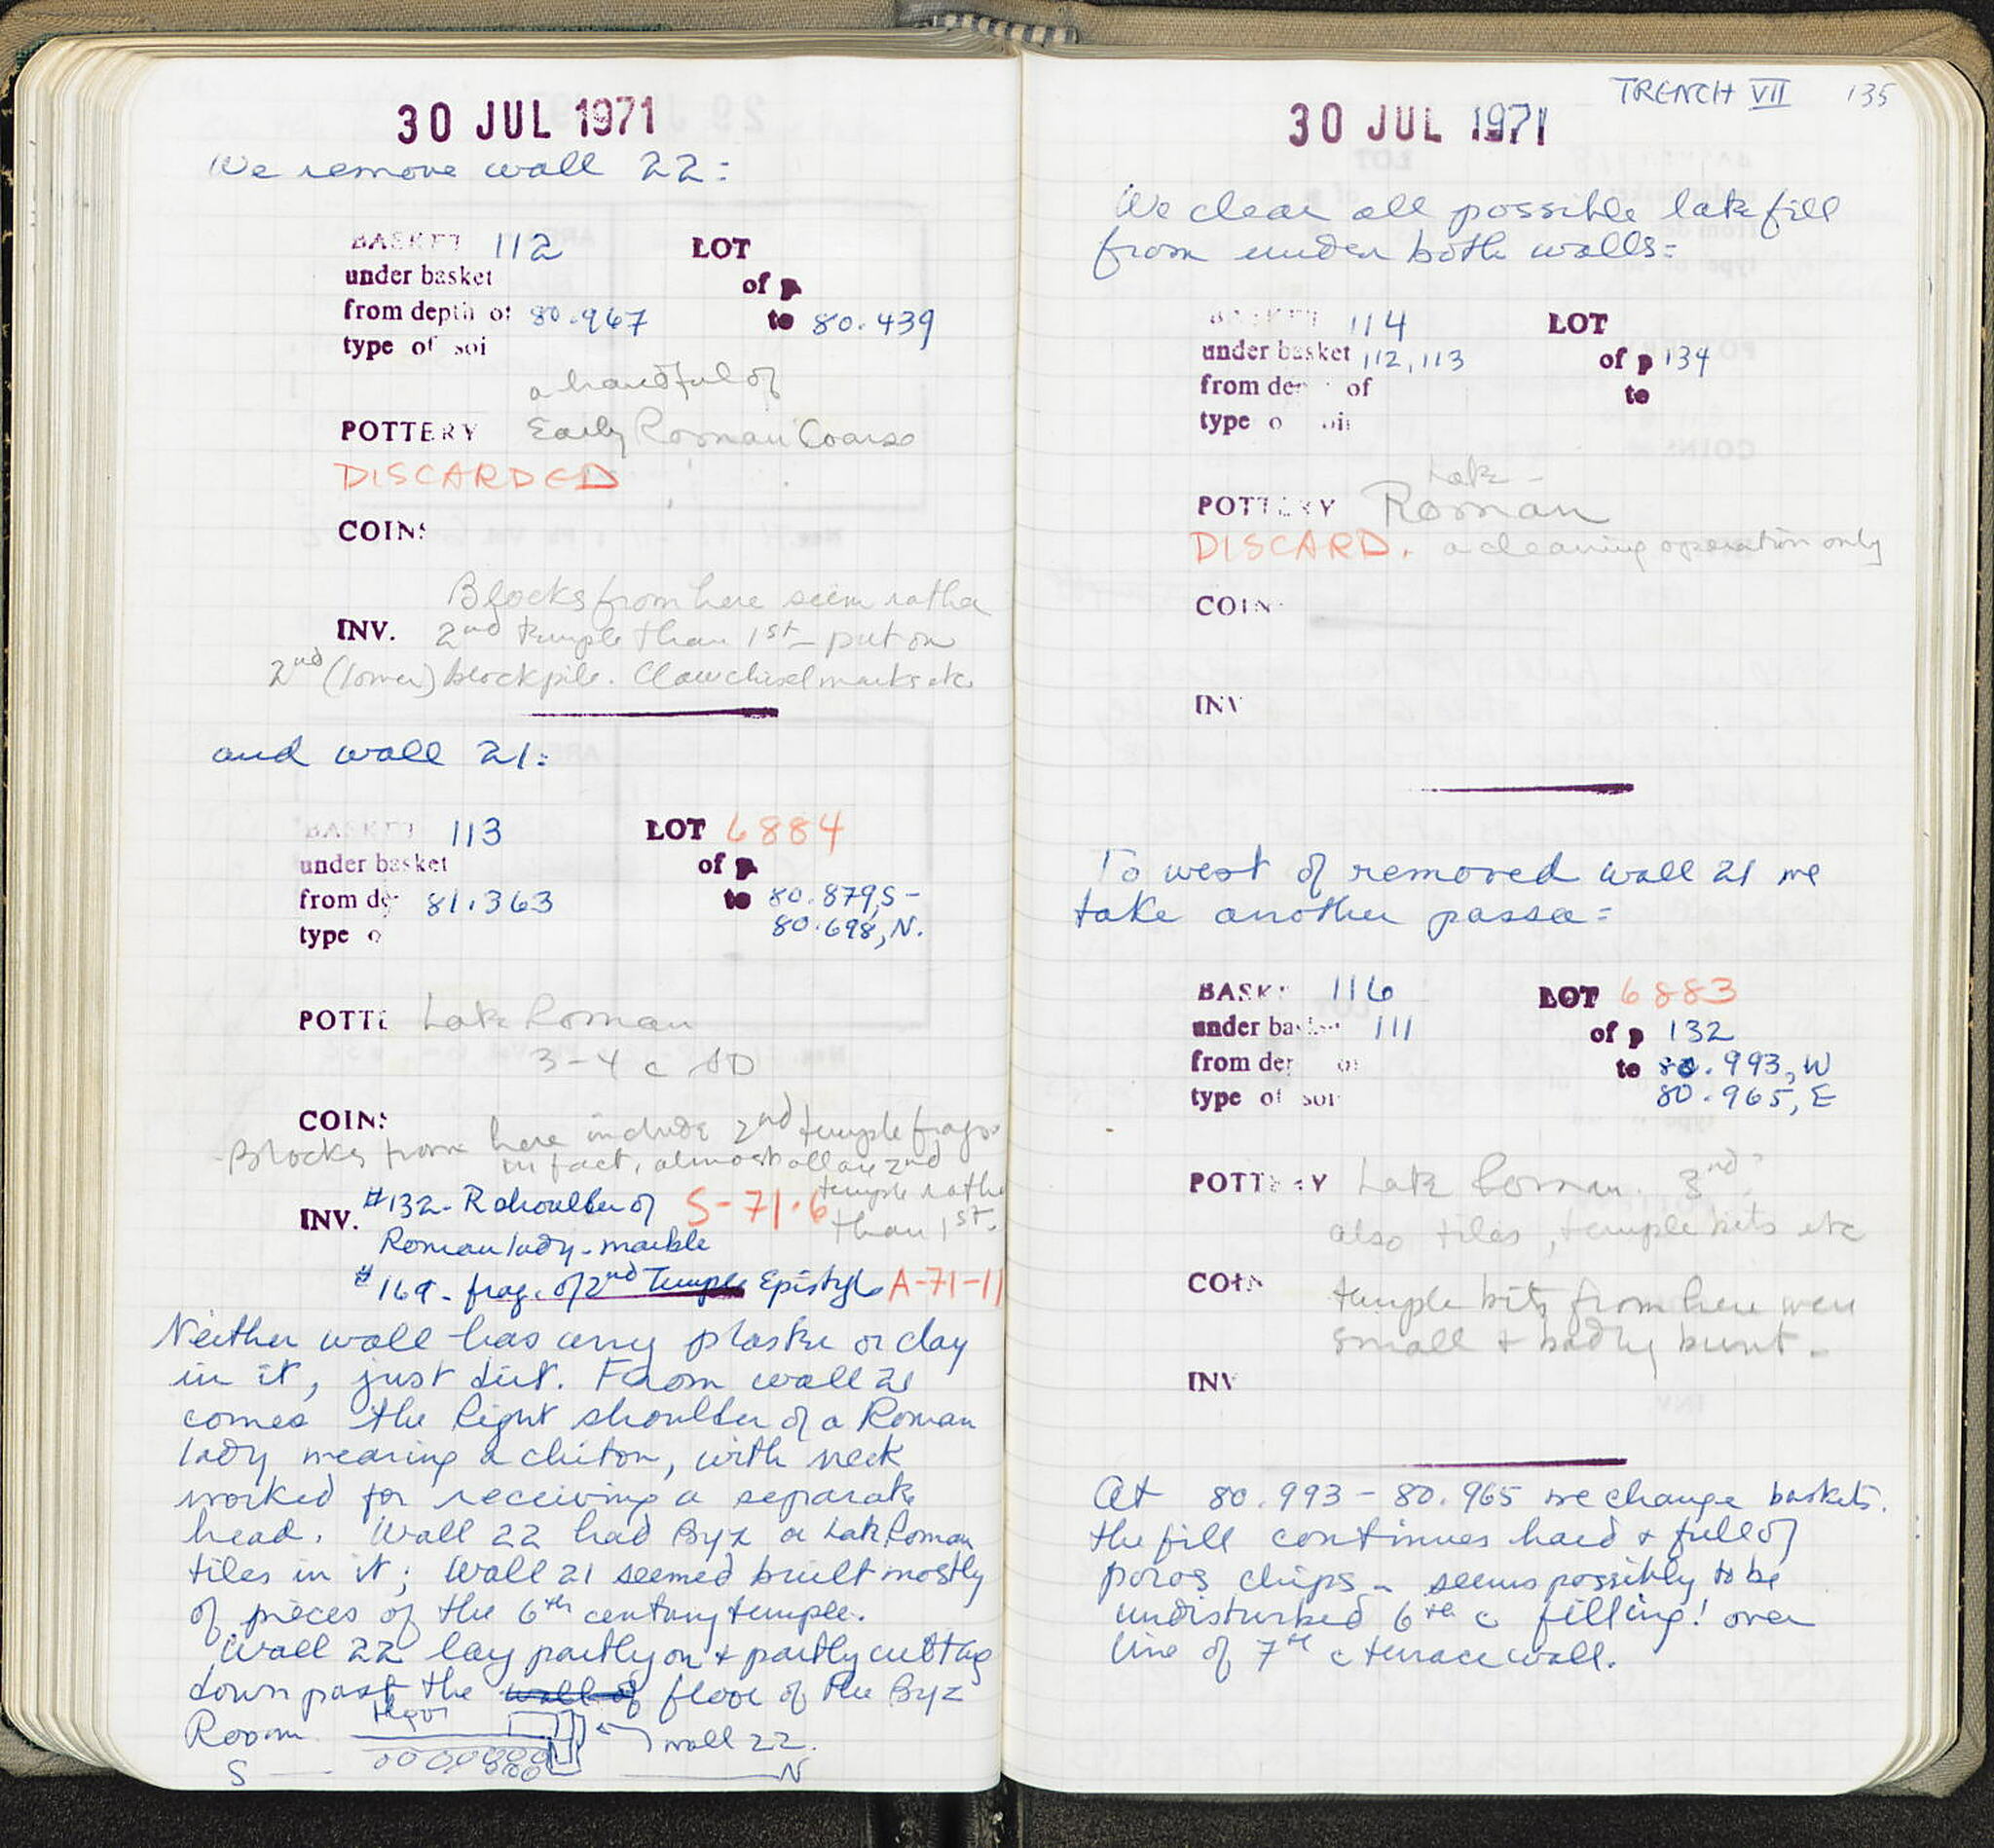 30 JUL 1971
We remove wall 22:
BASKET 112 LOT
under basket of p
from depth of 80.967 to 80.439
type of soi
a handful of
POTTERY Early Roman Coarse
DISCARDED
COINS
Blocks from here seem rather
INV. 2nd temple than 1st - put on
2nd (lower) block pile. Claw chisel marks etc
and wall 21:
BASKET 113 LOT 6884
under basket of p
from de 81.363 to 80.879,S -
80.698, N.
type o
POTTE Late Roman
3-4 c AD
COINS
Blocks from here include 2nd temple frags.
in fact, almost all are 2nd
temple rather
than 1st.
INV. #132 - R shoulder of S-71-6
Roman lady - marble
#169 - frag. of 2nd Temple Epistyle A-71-11
Neither wall has any plaster or clay
in it, just dirt. From wall 21
comes the right shoulder of a Roman
lady wearing a chiton, with neck
worked for receiving a separate
head. Wall 22 had Byz or Late Roman
tiles in it; Wall 21 seemed built mostly
of pieces of the 6th century temple.
Wall 22 lay partly on + partly cutting
down past the wall of floor of the Byz
Room
floor
wall 22.
S N
TRENCH VII 135
30 JUL 1971
We clear all possible late fill
from under both walls:
BASKET 114 LOT
under basket 112, 113 of p 134
from dep of to
type o oil
Late -
POTTERY Roman
DISCARD. a cleaning operation only
COIN
INV
To west of removed wall 21 we
take another pass:
BASKE 116 LOT 6883
under basket 111 of p 132
from dep of to 80.993, W
80.965, E
type of soi
POTTERY Late Roman. 3rd?
also tiles, temple bits etc
COIN temple bits from here were
small + badly burnt.
INV
At 80.993 - 80.965 we change baskets.
the fill continues hard + full of
poros chips - seems possibly to be
undisturbed 6th c filling! over
line of 7th c terrace wall.